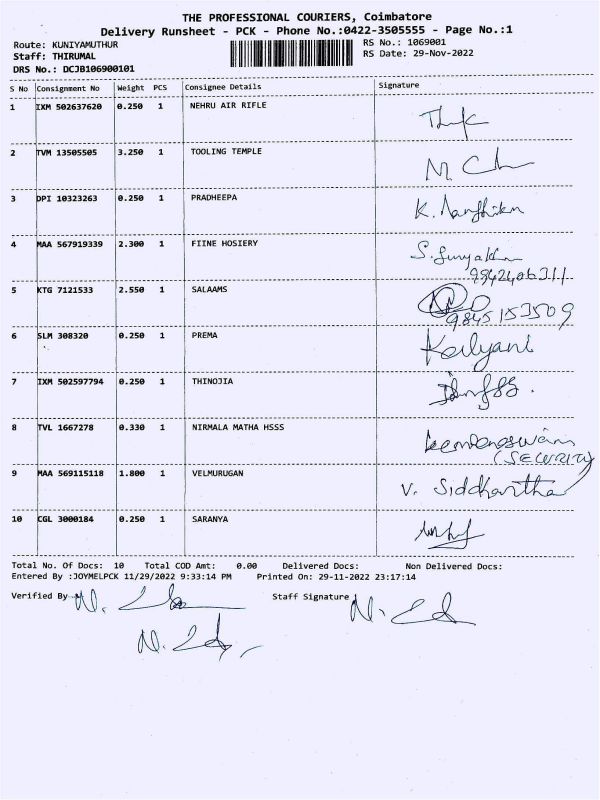 THE PROFESSIONAL COURIERS, Coimbatore
Delivery Runsheet - PCK - Phone No.:0422-3505555 - Page No.:1
Route: KUNIYAMUTHUR RS No.: 1069001
Staff: THIRUMAL RS Date: 29-Nov-2022
DRS No.: DCJB106900101
S No Consignment No Weight PCS Consignee Details Signature
1 IXM 502637620 0.250 1 NEHRU AIR RIFLE
2 TVM 13505505 3.250 1 TOOLING TEMPLE
3 DPI 10323263 0.250 1 PRADHEEPA K.
4 MAA 567919339 2.300 1 FIINE HOSIERY S.
9942406311
5 KTG 7121533 2.550 1 SALAAMS
9845153509
6 SLM 308320 0.250 1 PREMA Kalyani
7 IXM 502597794 0.250 1 THINOJIA
8 TVL 1667278 0.330 1 NIRMALA MATHA HSSS
(SECURITY)
9 MAA 569115118 1.800 1 VELMURUGAN V. Siddhartha
10 CGL 3000184 0.250 1 SARANYA
Total No. Of Docs: 10 Total COD Amt: 0.00 Delivered Docs: Non Delivered Docs:
Entered By :JOYMELPCK 11/29/2022 9:33:14 PM Printed On: 29-11-2022 23:17:14
Verified By Staff Signature